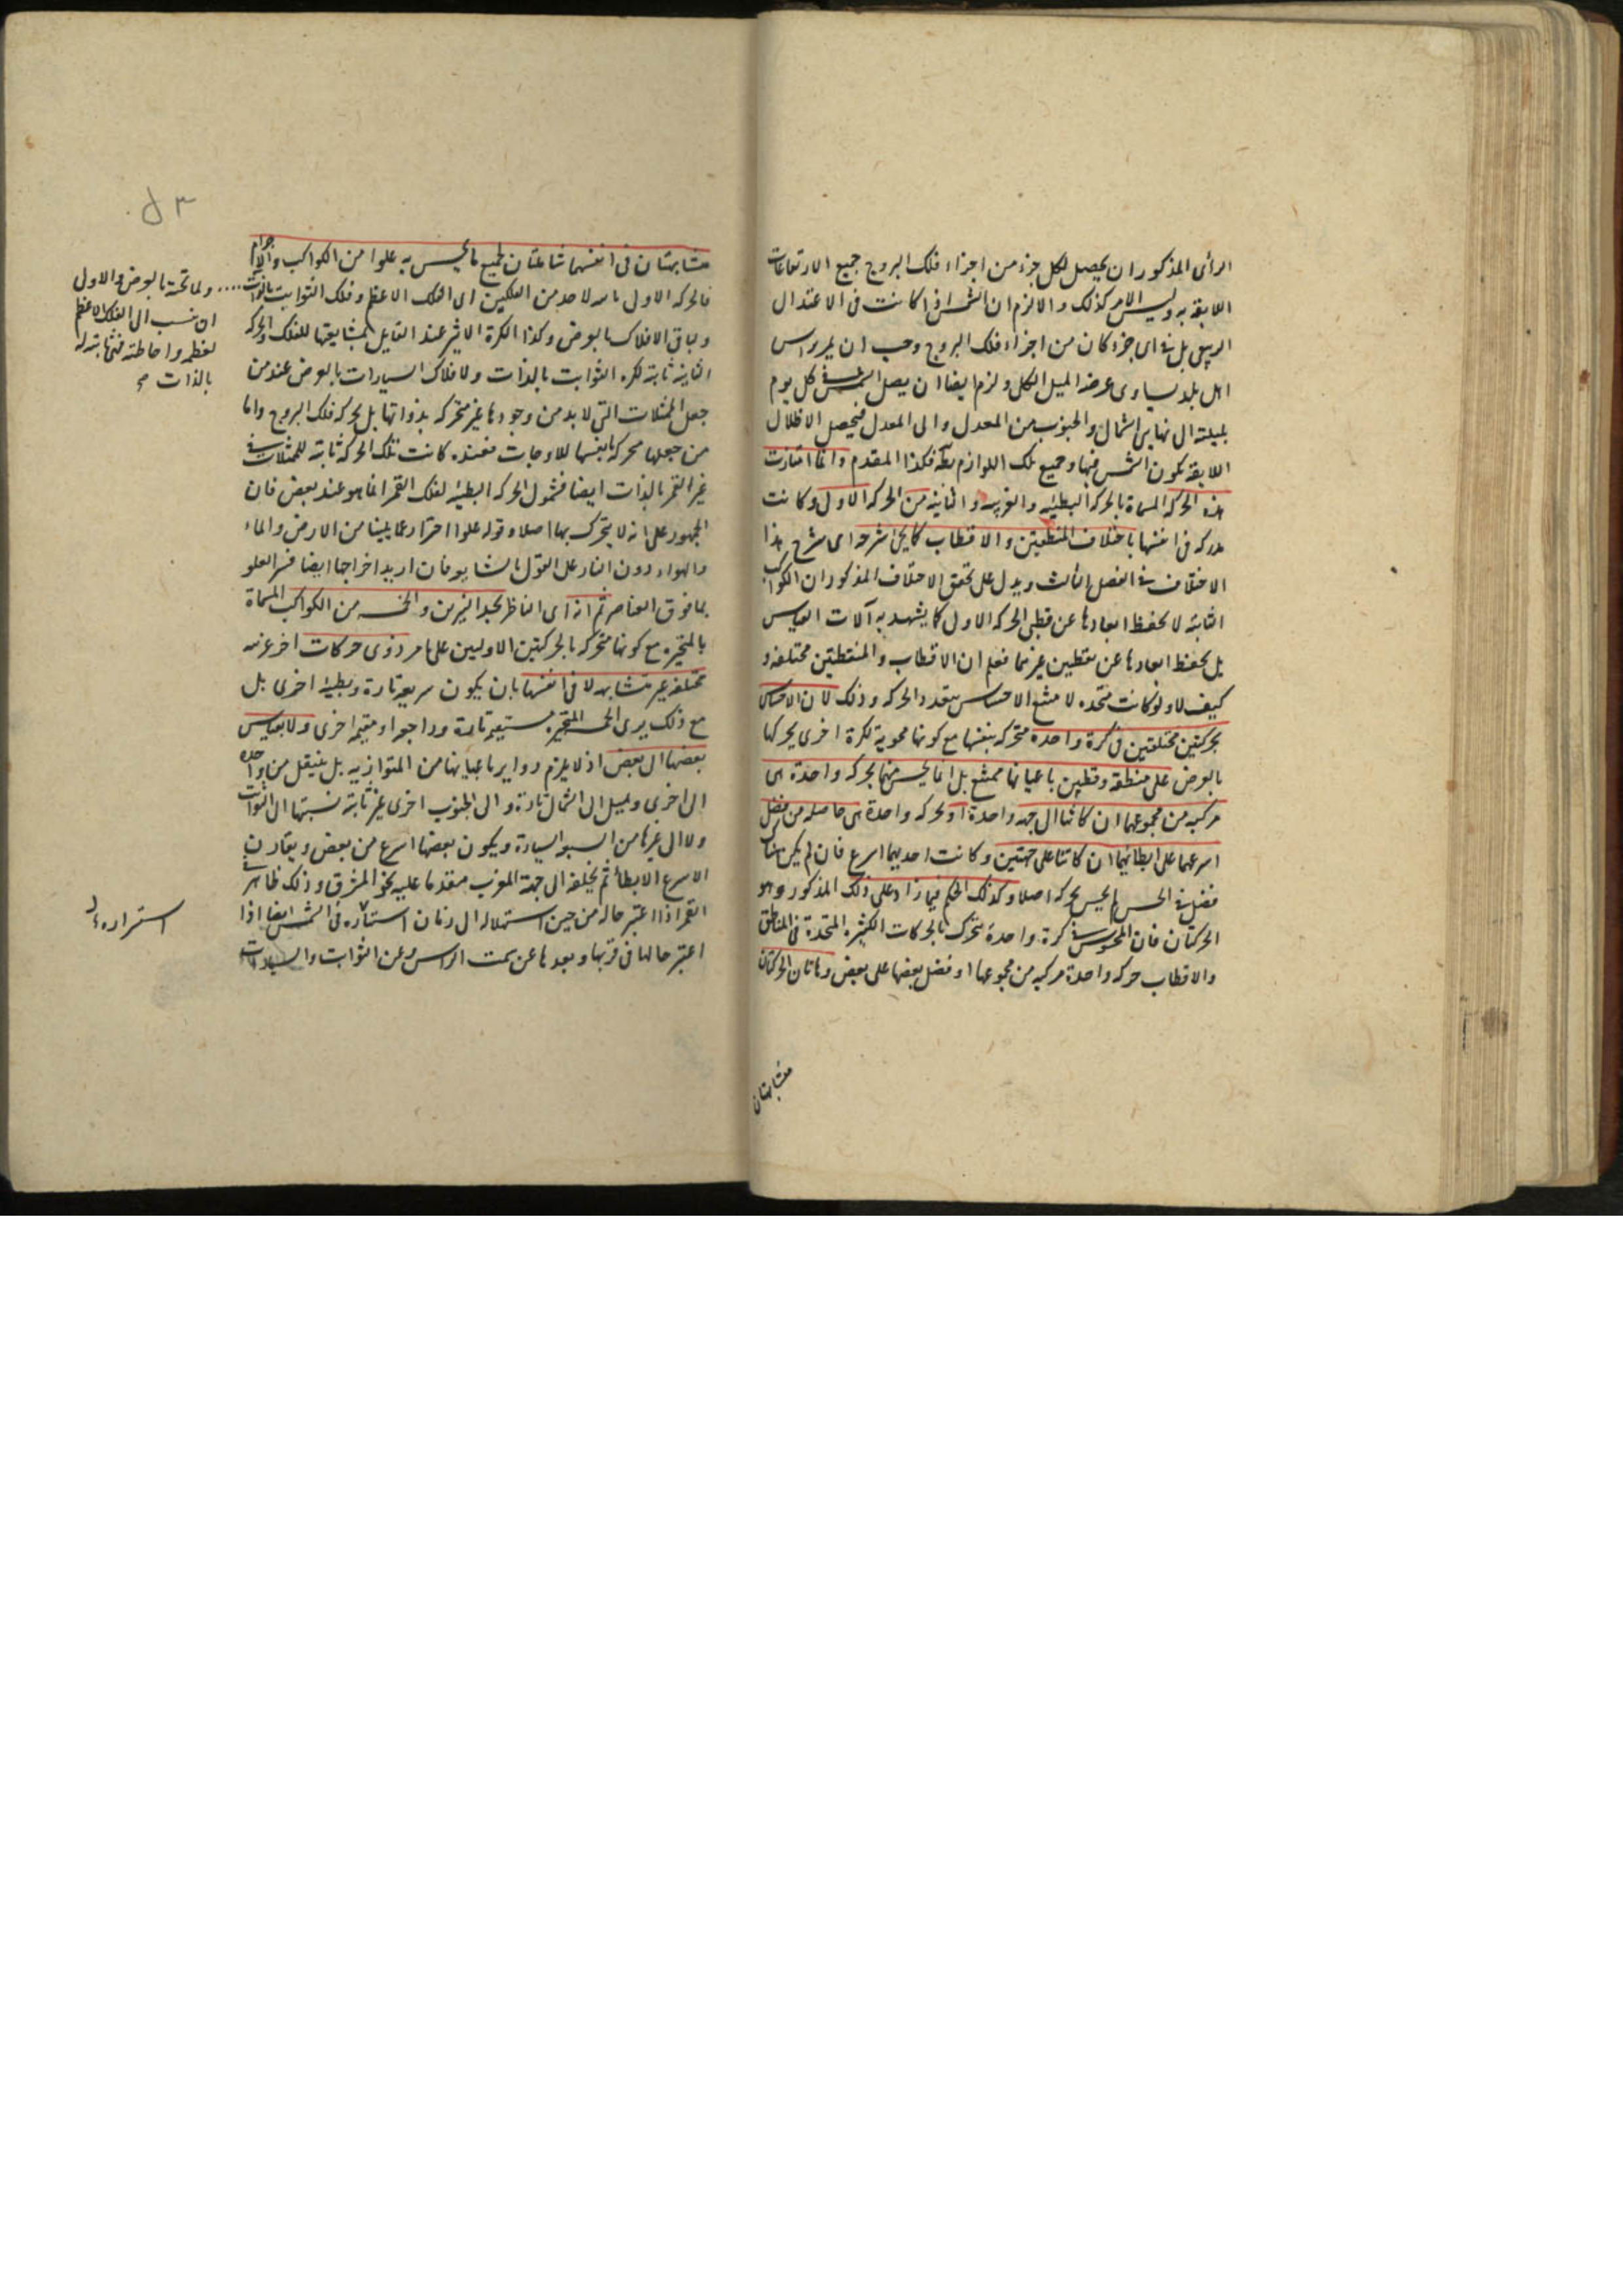 الرأى المذكور ان يحصل لكل جزء من اجزاء فلك البروج جميع الارتفاعات
اللايقة به وليس الامر كذلك والا لزم ان الشمس اذا كانت فى الاعتدال
الربيعى بل فى اى جزء كان من اجزاء فلك البروج وجب ان يمر براس
اهل بلد يساوى عرضه الميل الكلى ولزم ايضا ان يصل الشمس فى كل يوم
بميلته الى نهايتى الشمال والجنوب من المعدل والى المعدل فيحصل الاظلال
اللايقة بكون الشمس فيها وجميع تلك اللوازم بط فكذا المقدم وانما امتازت
هذه الحركة المسماة بالحركة البطيئه والغربيه والثانية من الحركة الاولى وكانت
مدركه فى انفسها باختلاف المنطقتين والاقطاب كما يجئ شرحه اى شرح هذا
الاختلاف فى الفصل الثالث ويدل على تحقق الاختلاف المذكور ان الكواكب
الثابتة لا تحفظ ابعادها عن قطبى الحركة الاولى كما يشهد به آلات القياس
بل تحفظ ابعادها عن نقطتين غيرهما فعلم ان الاقطاب والمنطقتين مختلفة و
كيف لا ولو كانت متحده لا متنع الاحساس بتعدد الحركه وذلك لان الاحساس
بحركتين مختلفتين فى كرة واحدة متحركه بنفسها مع كونها محوية لكرة اخرى يحركها
بالعرض على منطقة وقطبين باعيانها ممتنع بل انما يحس منهما بحركه واحدة هى
مركبه من مجموعهما ان كانتا الى جهه واحدة او بحركه واحدة هى حاصله من فضل
اسرعهما على ابطائهما ان كانتا على جهتين وكانت احديهما اسرع فان لم يكن هناك
فضل فى الحس لم يحس بحركه اصلا وكذلك الحكم فيما زاد على ذلك المذكور وهو
الحركتان فان المحسوس فى كرة واحدة يتحرك بالحركات الكثيره المتحدة فى المناطق
والاقطاب حركه واحدة مركبه من مجموعها او فضل بعضها على بعض وهاتان الحركتان
متشابهتان
متشابهتان فى انفسهما شاملتان لجميع ما يحس به علوا من الكواكب والاجرام
فالحركه الاولى لاحد من الفلكين اى الفلك الاعظم وفلك الثوابت بالذات
ولباقى الافلاك بالعرض وكذا الكرة الاثير عند القايل بمشايعتها للفلك والحركه
الثانية ثابته لكره الثوابت بالذات ولافلاك السيارات بالعرض عند من
جعل الممثلات التى لا بد من وجودها غير متحركه بذواتها بل بحركه فلك البروج واما
من جعلها متحركه بانفسها للاوجات فعنده كانت تلك الحركه ثابته للممثلات فى
غير القمر بالذات ايضا فشمول الحركه البطيئه لفلك القمر انما هو عند بعض فان
الجمهور على انه لا يتحرك بها اصلا وقوله علوا احتراز عما يلينا من الارض والماء
والهواء دون النار على القول بالتشايع فان اريد اخراجها ايضا فسر العلو
بما فوق العناصر ثم انه اى الناظر يجد النيرين والخمسه من الكواكب المسماة
بالمتحيره مع كونها متحركه بالحركتين الاوليين على ما مر ذوى حركات اخر غريبه
مختلفه غير متشابهه لا فى انفسها بان يكون سريعه تارة وبطيئه اخرى بل
مع ذلك يرى الخمسه المتحيره مستقيمه تارة وراجعه او مقيمه اخرى ولا بقياس
بعضها الى بعض اذ لا يلزم دواير باعيانها من المتوازيه بل ينتقل من واحده
الى اخرى ويميل الى الشمال تارة والى الجنوب اخرى غير ثابته نسبتها الى الثوابت
ولا الى غيرها من السبع السيارة ويكون بعضها اسرع من بعض ويقارن
الاسرع الابطأ ثم يخلفه الى جهة المغرب متقدما عليه نحو المشرق وذلك ظاهر فى
القمر اذا اعتبر حاله من حين استهلاله الى زمان استتاره وفى الشمس ايضا اذا
اعتبر حالها فى قربها وبعدها عن سمت الراس وعن الثوابت والسيارات
ولما تحته بالعرض والاولى
ان ينسب الى الفلك الاعظم
لعظمه واحاطته فثابته له
بالذات